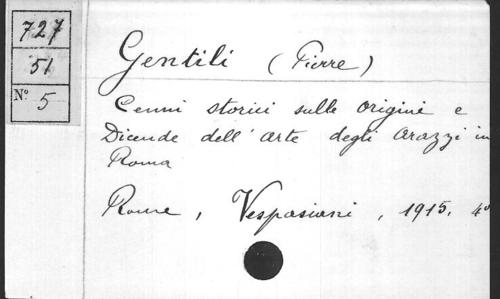 727
51
N° 5
Gentili (Pierre)
Cenni storici sulle origini e
Dicende dell'arte degli arazzi in
Roma
Rome, Vespasiani, 1915. 4°